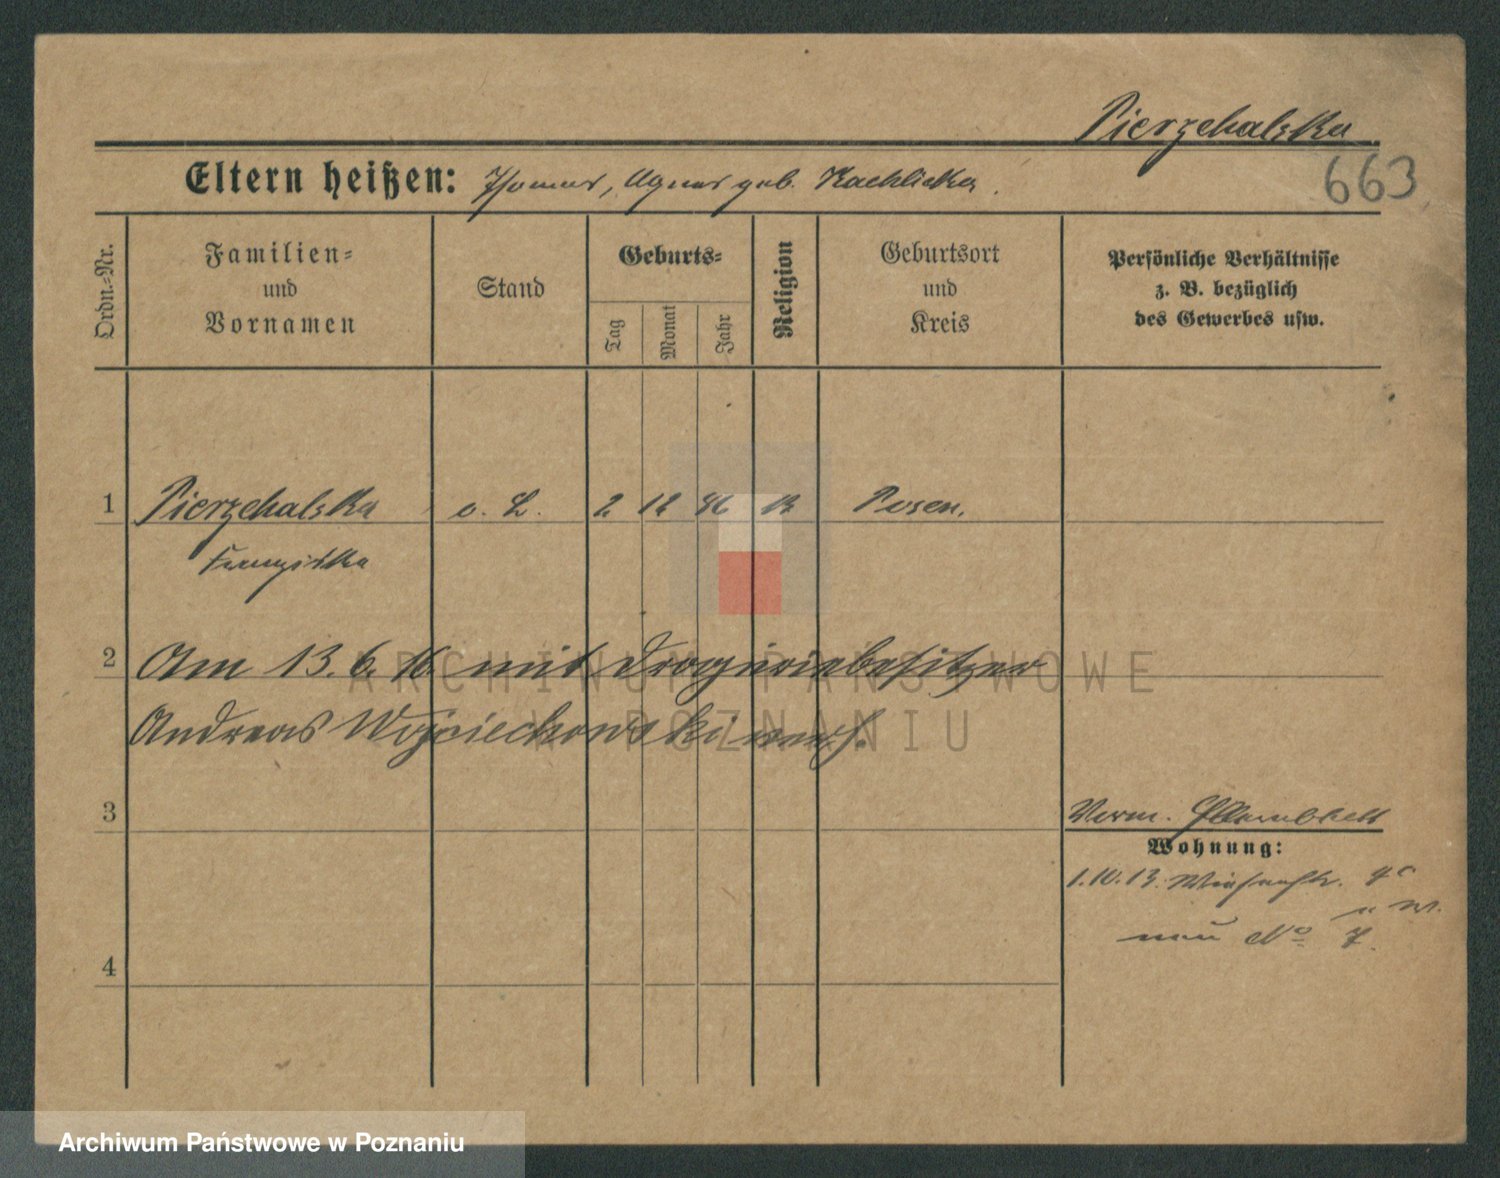 Pierzchalska
663
Eltern heißen: Thomas, Agnes geb. Kachlicka.
Ordn.-Nr.
Familien-
und
Vornamen
Stand
Geburts-
Tag
Monat
Jahr
Religion
Geburtsort
und
Kreis
Persönliche Verhältnisse
z. B. bezüglich
des Gewerbes usw.
1 Pierzchalska o. 2 12 86 Posen.
Franziska
2 Am 13.6.16. mit Drogeriebesitzer
Andreas Wojciechowski verh.
3
Verm.
Wohnung:
1.10.13.
neu No 7.
4
ARCHIWUM PAŃSTWOWE
W POZNANIU
Archiwum Państwowe w Poznaniu